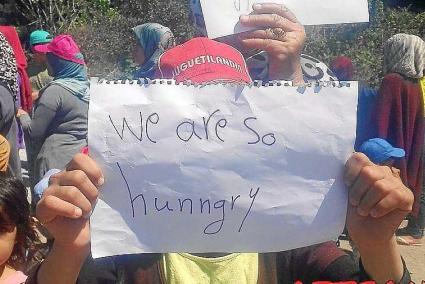 JUGUETILANDIA
We are so
hunngry